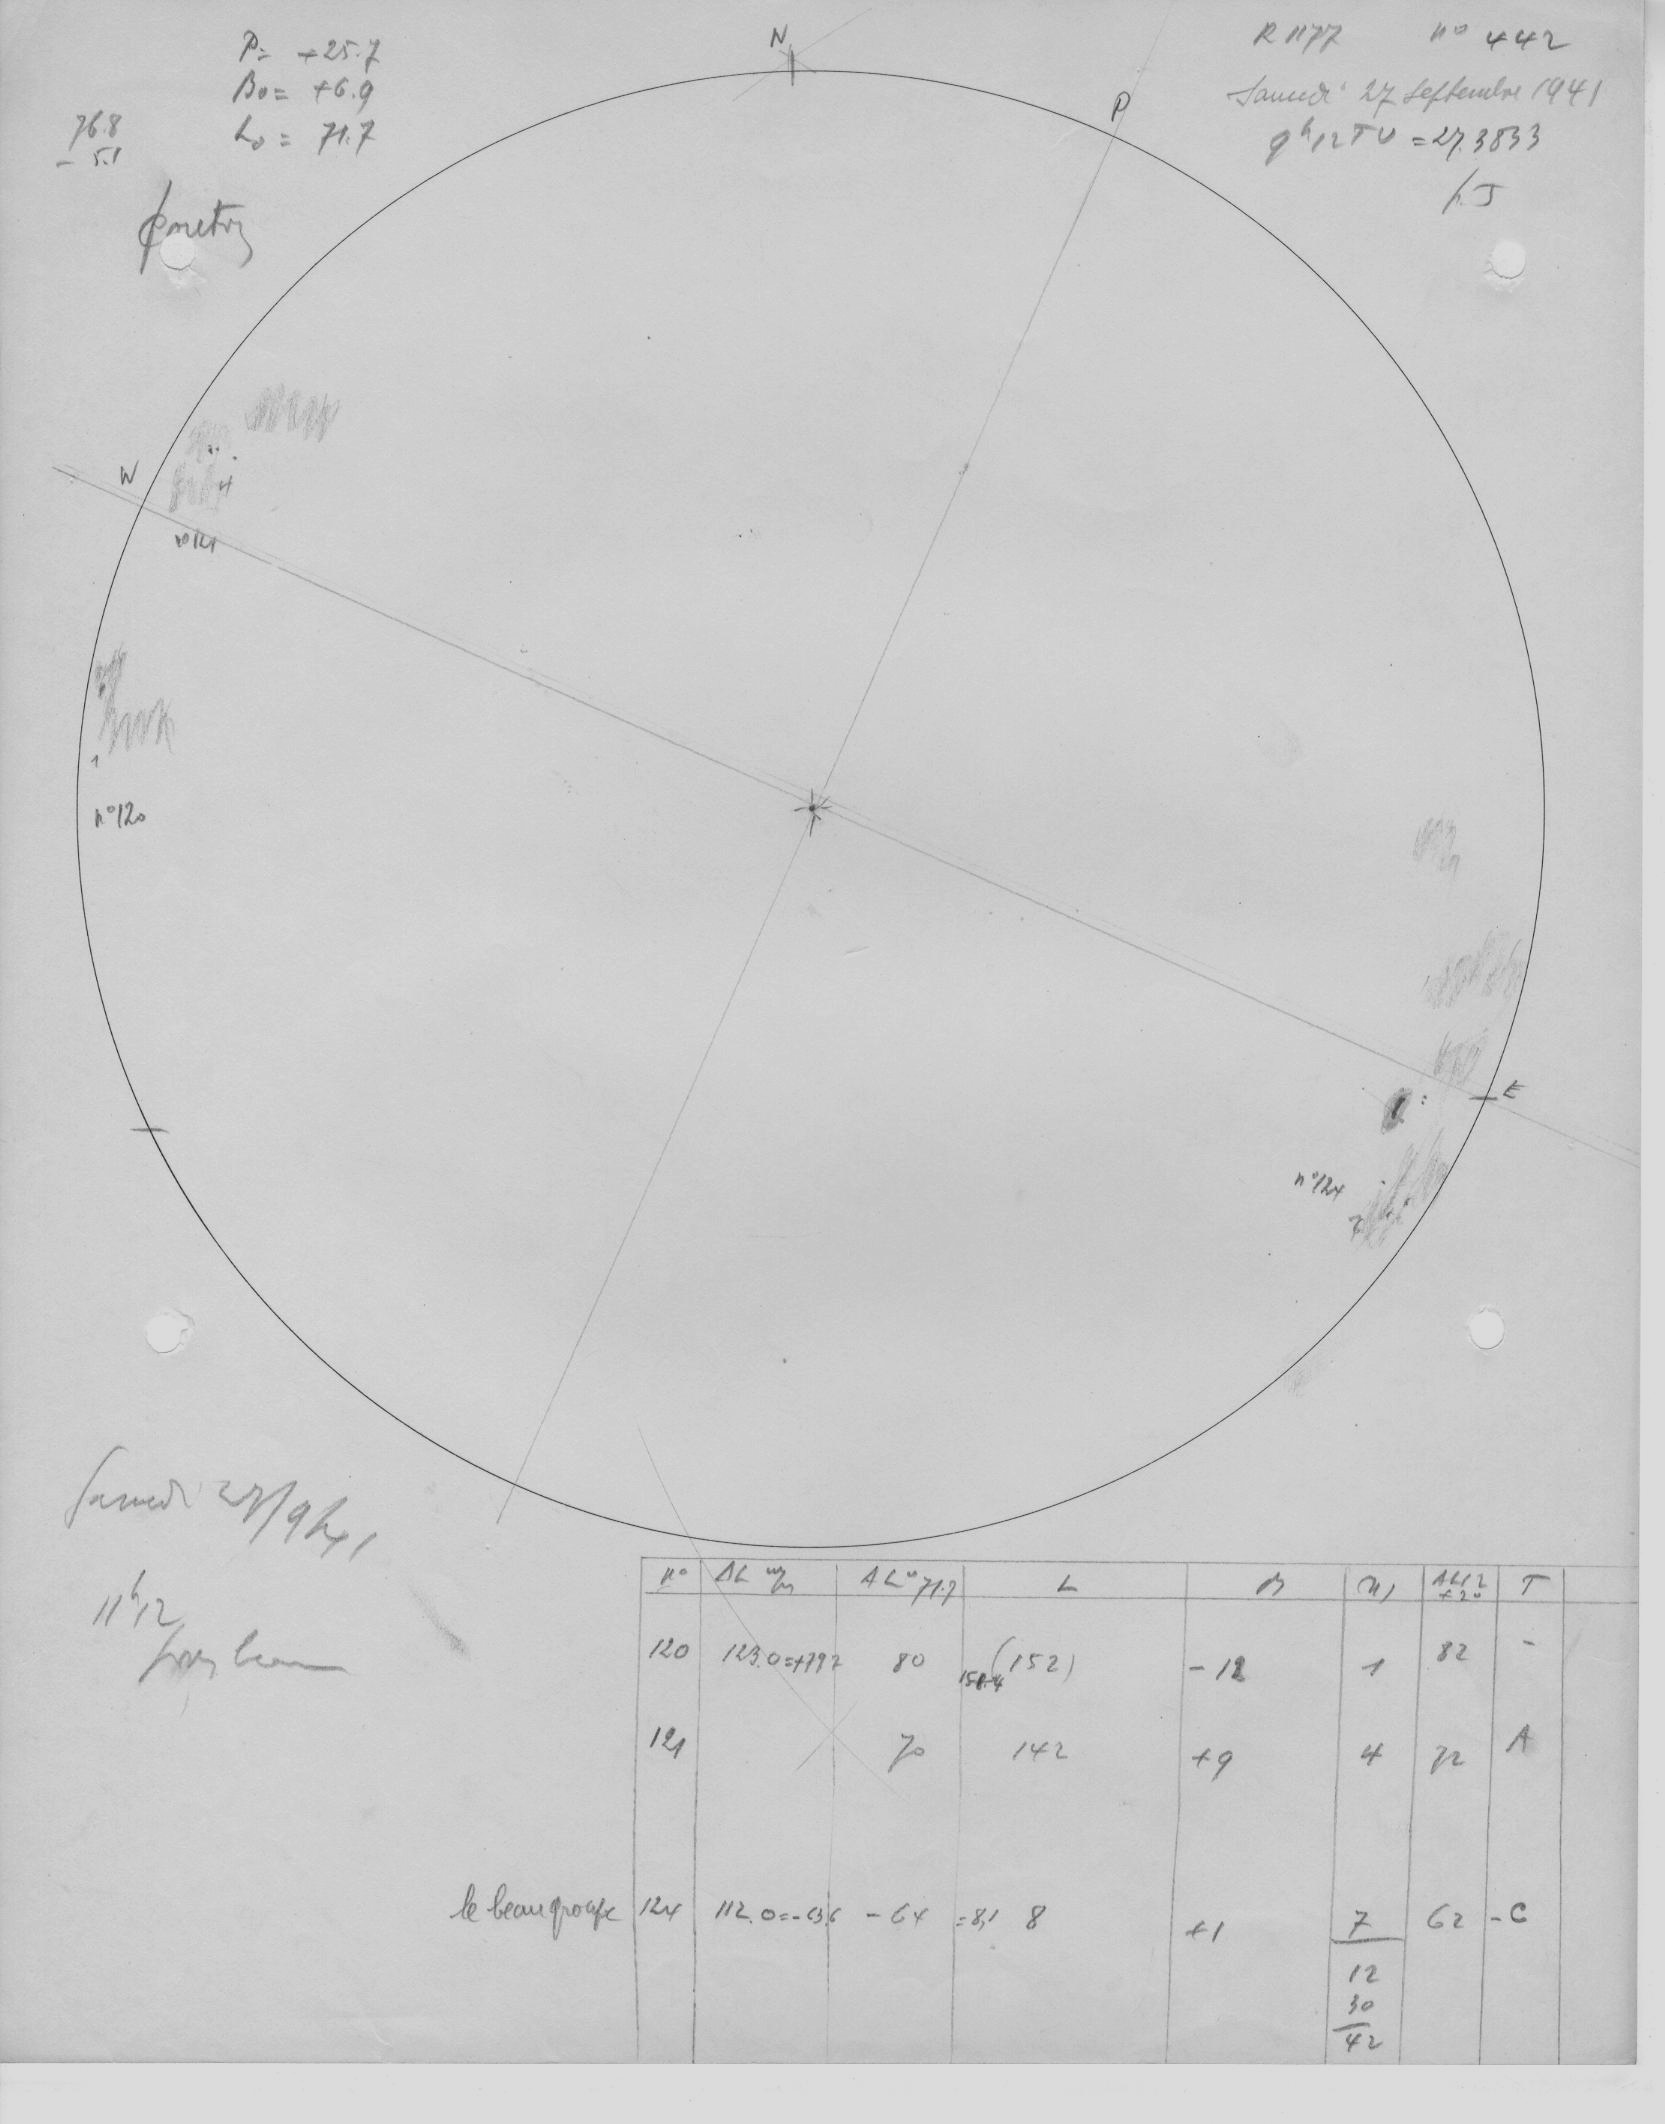 P = +25.7
B₀ = +6.9
L₀ = 71.7
76.8
- 5.1
N
P
R 1177 n° 442
Samedi 27 Septembre 1941
9h12 TU = 27.3833
W
4
n°121
1
n°120
E
n°124
7
Samedi 27/9/41
11h12
n° ΔL m/m ΔL° 71.7 L
T
120 123.0=+79.2 80 (152) -12 1 82 -
121 70 142 +9 4 72 A
le beau groupe 124 112.0=-63.6 -64 =8,1 8 +1 7 62 -C
12
30
42